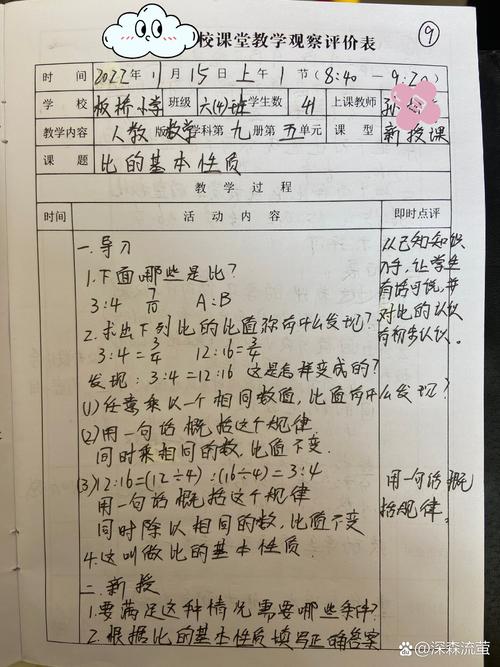 校课堂教学观察评价表
⑨
时间 2022年11月15日上午1节(8:40—9:20)
学校 板桥小学 班级 六(4)班 学生数 41 上课教师 孙
教学内容 人教版数学学科第九册第五单元 课型 新授课
课题 比的基本性质
教学过程
时间 活动内容 即时点评
一.导入
1.下面哪些是比?
3:4 7/10 A:B
2.求出下列比的比值你有什么发现?
3:4=3/4 12:16=3/4
发现:3:4=12:16 这是怎样变成的?
(1)任意乘以一个相同数值,比值有什么发现?
(2)用一句话概括这个规律
同时乘相同的数,比值不变.
(3)12:16=(12÷4):(16÷4)=3:4
用一句话概括这个规律
同时除以相同的数,比值不变
4.这叫做比的基本性质
二.新授
1.要满足这种情况需要哪些条件?
2.根据比的基本性质填写正确答案
从已知知识
入手,让学生
有话可说,并
对比的认识
有初步认识。
用一句话概
括规律.
@深森流萤